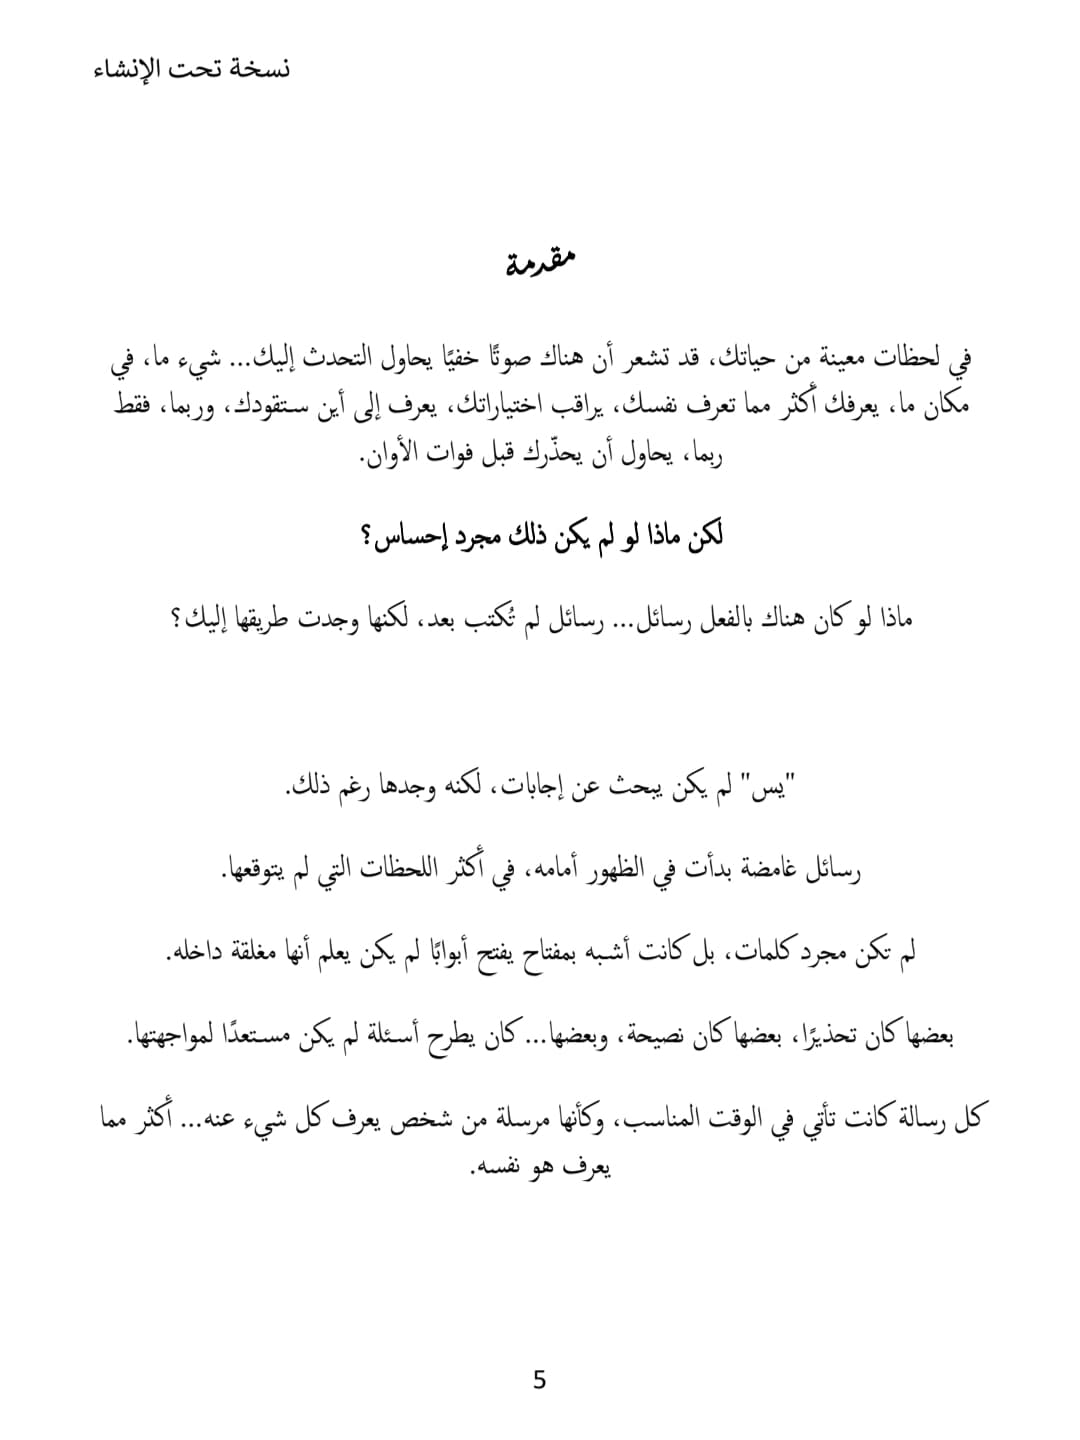 نسخة تحت الإنشاء
مقدمة
في لحظات معينة من حياتك، قد تشعر أن هناك صوتًا خفيًا يحاول التحدث إليك... شيء ما، في
مكان ما، يعرفك أكثر مما تعرف نفسك، يراقب اختياراتك، يعرف إلى أين ستقودك، وربما، فقط
ربما، يحاول أن يحذّرك قبل فوات الأوان.
لكن ماذا لو لم يكن ذلك مجرد إحساس؟
ماذا لو كان هناك بالفعل رسائل... رسائل لم تُكتب بعد، لكنها وجدت طريقها إليك؟
"يس" لم يكن يبحث عن إجابات، لكنه وجدها رغم ذلك.
رسائل غامضة بدأت في الظهور أمامه، في أكثر اللحظات التي لم يتوقعها.
لم تكن مجرد كلمات، بل كانت أشبه بمفتاح يفتح أبوابًا لم يكن يعلم أنها مغلقة داخله.
بعضها كان تحذيرًا، بعضها كان نصيحة، وبعضها... كان يطرح أسئلة لم يكن مستعدًا لمواجهتها.
كل رسالة كانت تأتي في الوقت المناسب، وكأنها مرسلة من شخص يعرف كل شيء عنه... أكثر مما
يعرف هو نفسه.
5